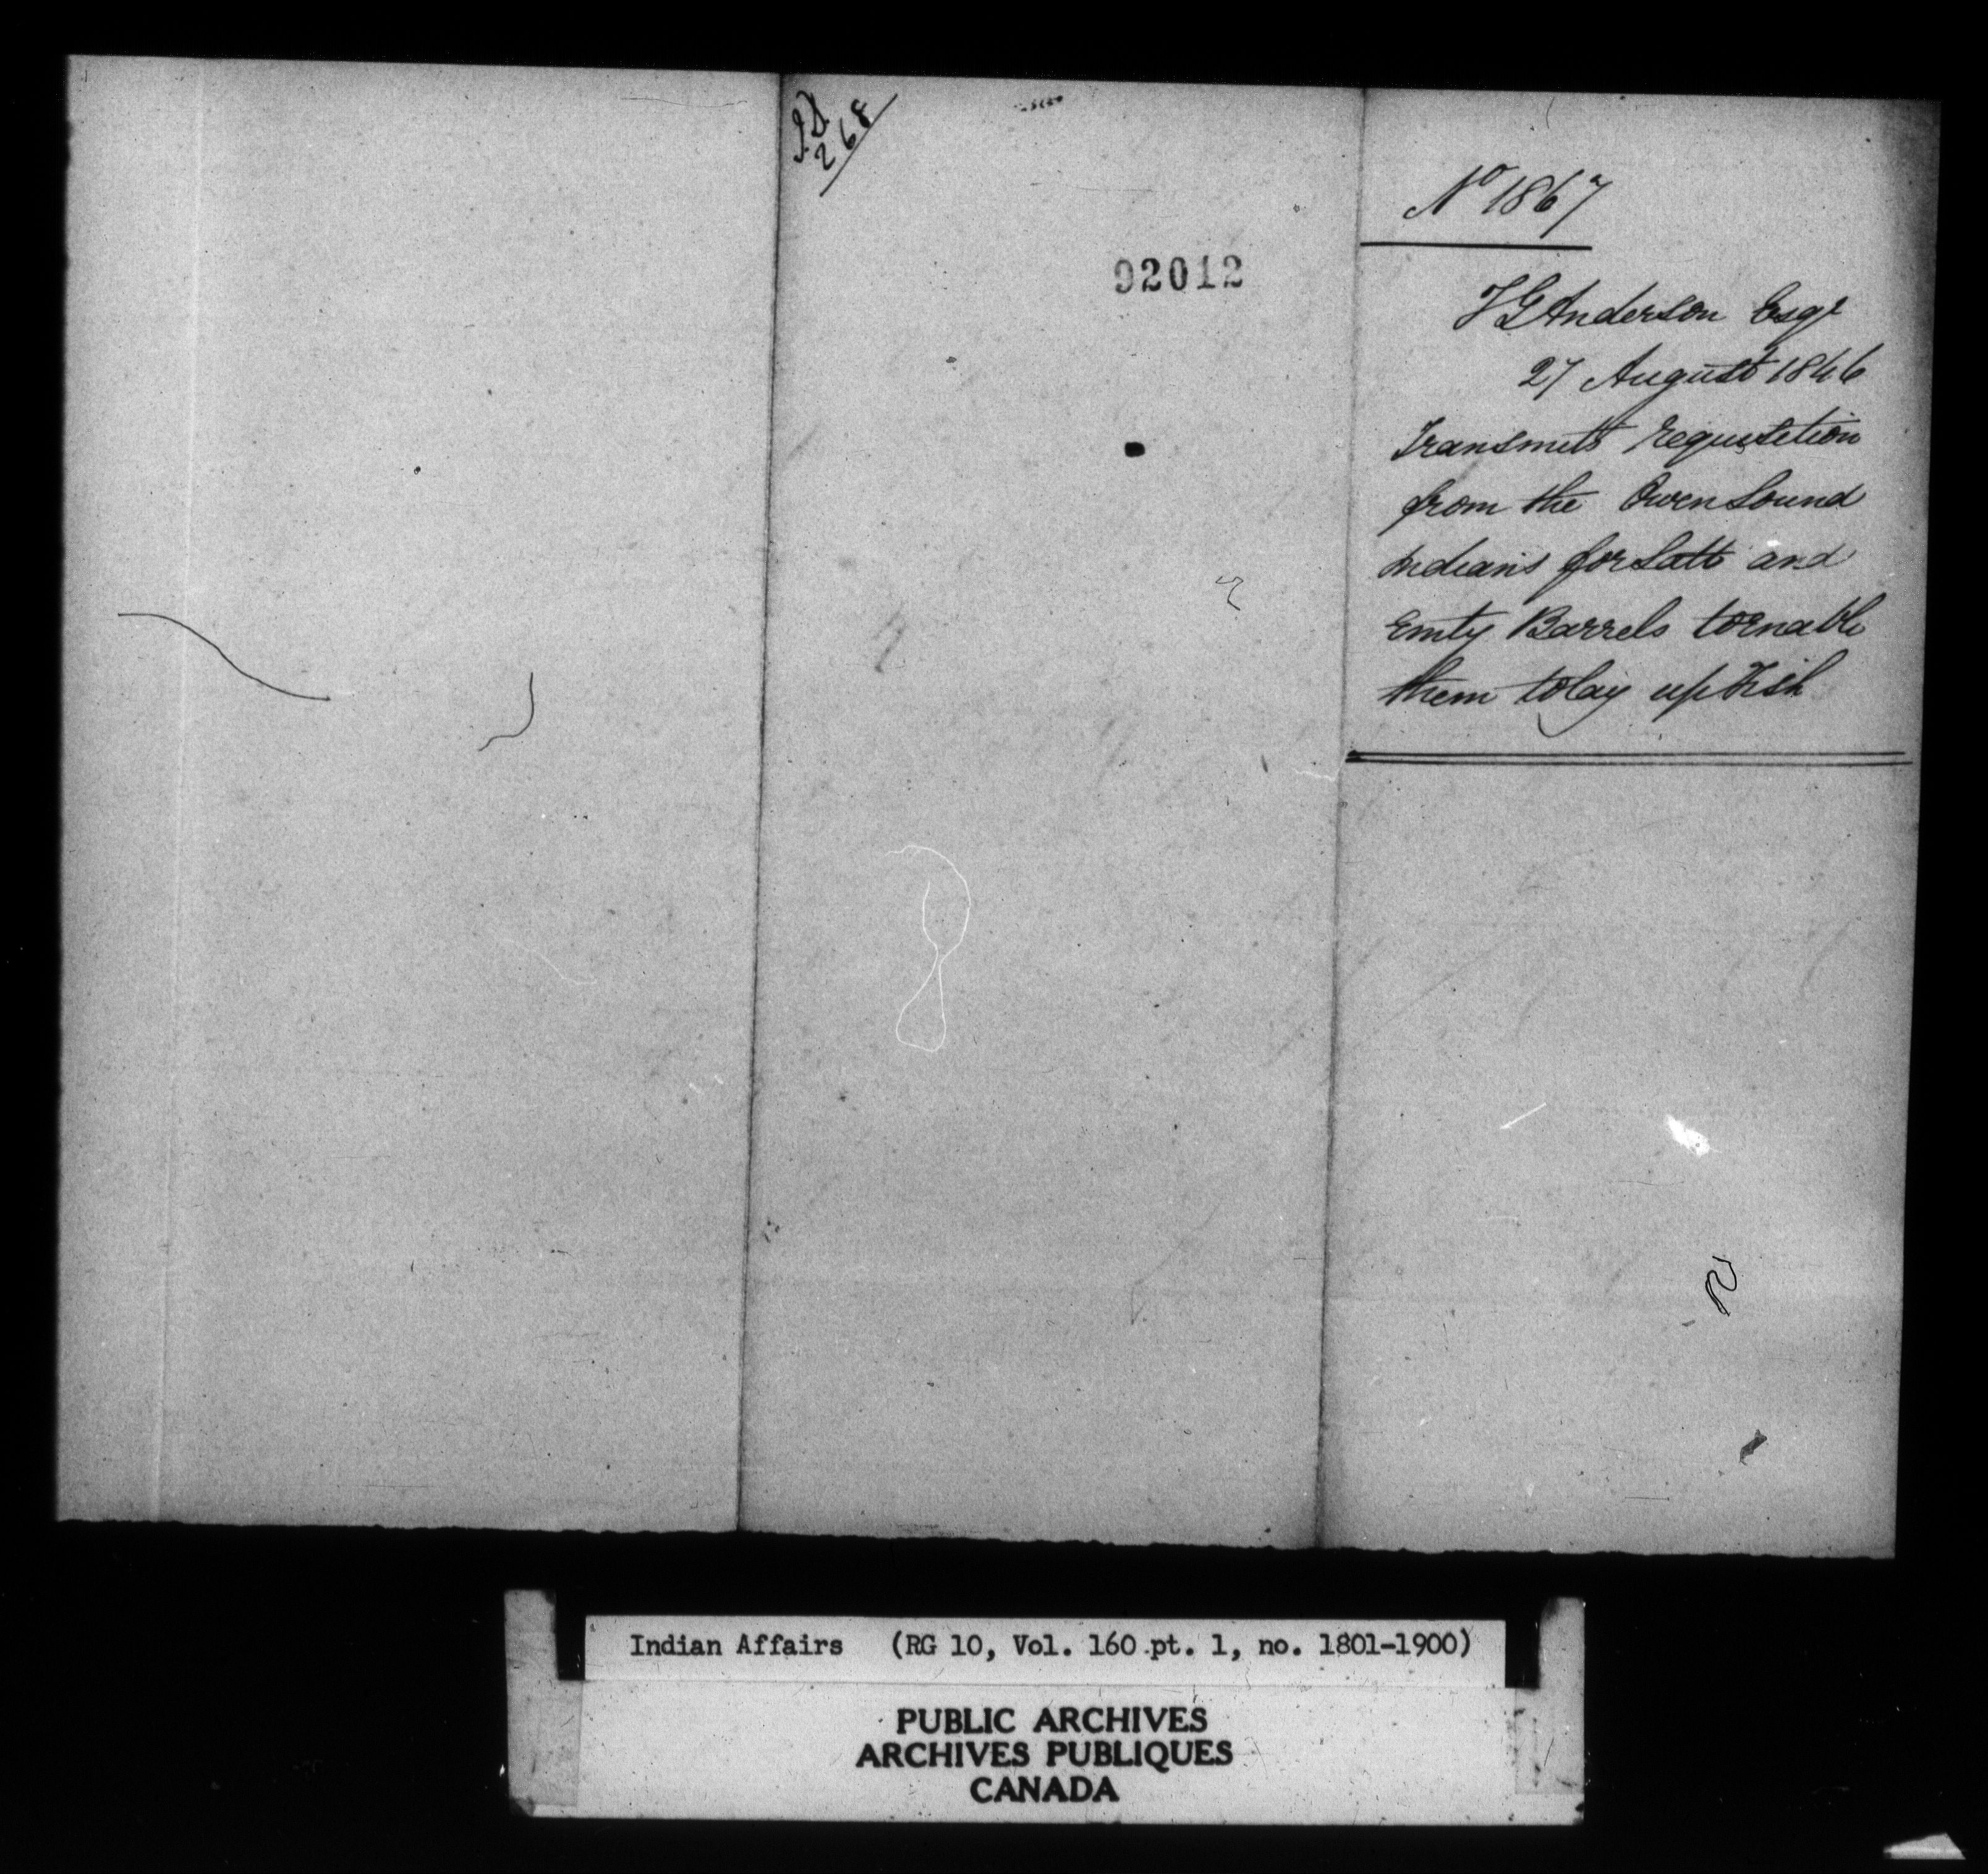 268
92012
No 1867
T G Anderson Esqr
27 August 1846
Transmits requisition
from the Owen Sound
Indians for Salt and
Emty Barrels to enable
them to lay up Fish
Indian Affairs (RG 10, Vol. 160 pt. 1, no. 1801-1900)
PUBLIC ARCHIVES
ARCHIVES PUBLIQUES
CANADA